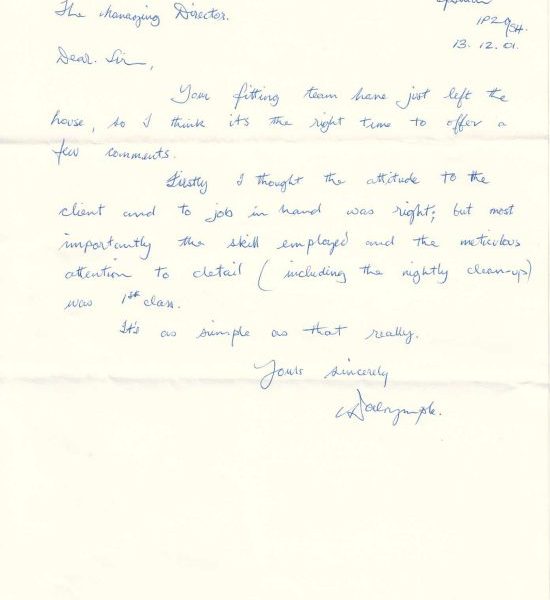 Ipswich
The Managing Director.
IP2 9SH.
13. 12. 01.
Dear Sir,
Your fitting team have just left the
house, so I think its the right time to offer a
few comments.
Firstly I thought the attitude to the
client and to job in hand was right; but most
importantly the skill employed and the meticulous
attention to detail (including the nightly clean-up)
was 1st class.
It's as simple as that really.
Yours sincerely
Dalrymple.